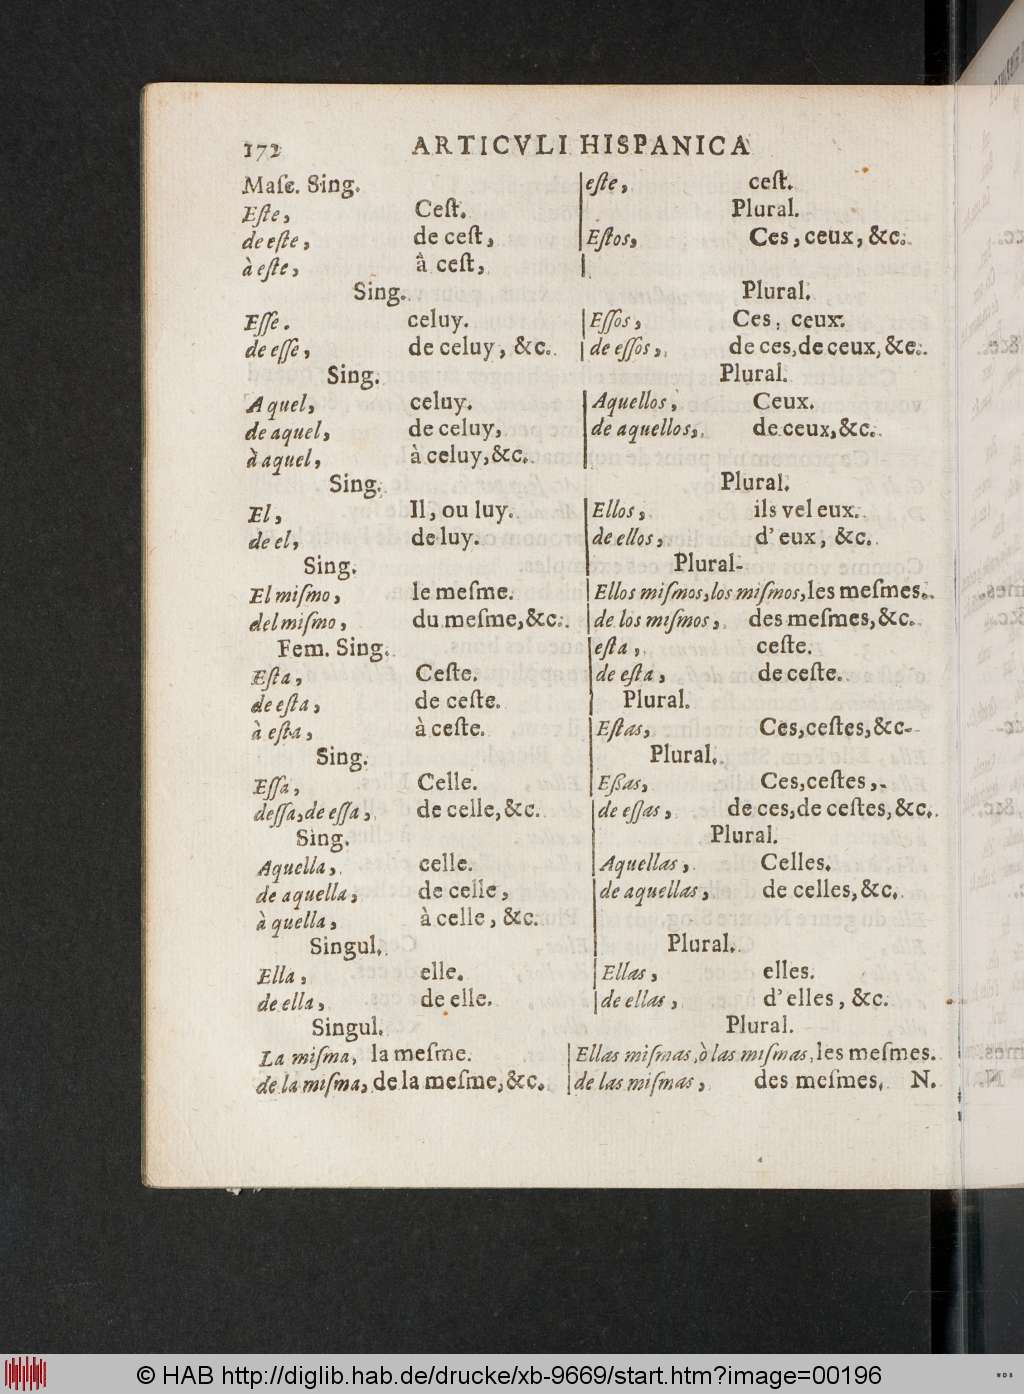 172 ARTICVLI HISPANICA
Maſc. Sing. | eſte, ceſt.
Eſte, Ceſt. | Plural.
de eſte, de ceſt, | Eſtos, Ces, ceux, &c.
à eſte, à ceſt, |
Sing. Plural.
Eſſe. celuy. | Eſſos, Ces, ceux.
de eſſe, de celuy, &c. | de eſſos, de ces, de ceux, &c.
Sing. Plural.
Aquel, celuy. | Aquellos, Ceux.
de aquel, de celuy, | de aquellos, de ceux, &c.
à aquel, à celuy, &c. |
Sing. Plural.
El, Il, ou luy. | Ellos, ils vel eux.
de el, de luy. | de ellos, d'eux, &c.
Sing. Plural-
El miſmo, le meſme. | Ellos miſmos, los miſmos, les meſmes.
del miſmo, du meſme, &c. | de los miſmos, des meſmes, &c.
Fem. Sing. | eſta, ceſte.
Eſta, Ceſte. | de eſta, de ceſte.
de eſta, de ceſte. | Plural.
à eſta, à ceſte. | Eſtas, Ces, ceſtes, &c-
Sing. Plural.
Eſſa, Celle. | Eßas, Ces, ceſtes,
deſſa, de eſſa, de celle, &c. | de eſſas, de ces, de ceſtes, &c.
Sing. Plural.
Aquella, celle. | Aquellas, Celles.
de aquella, de celle, | de aquellas, de celles, &c.
à quella, à celle, &c. |
Singul. Plural.
Ella, elle. | Ellas, elles.
de ella, de elle. | de ellas, d'elles, &c.
Singul. Plural.
La miſma, la meſme. | Ellas miſmas, ò las miſmas, les meſmes.
de la miſma, de la meſme, &c. | de las miſmas, des meſmes. N.
© HAB http://diglib.hab.de/drucke/xb-9669/start.htm?image=00196